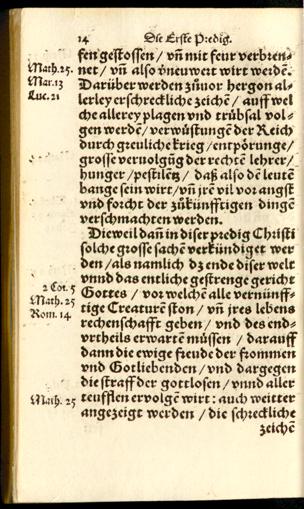 14 Die Erste Predig.
sen gestossen / vñ mit feur verbren-
Math. 25. net / vñ also v̉neuwert wirt werdē.
Mar. 13 Darüber werden zůuor hergon al-
Luc. 21 lerley erschreckliche zeichē / auff wel
che allerey plagen vnd trübsal vol-
gen werdē / verwüstungē der Reich
durch greuliche krieg / entpörunge /
grosse veruolgũg der rechtē lehrer /
hunger / pestilētz / daß also dē leutē
bange sein wirt / vñ jrē vil vor angst
vnd forcht der zůkünfftigen dingē
verschmachten werden.
Dieweil dañ in diser predig Christi
solche grosse sachē verkündiget wer
den / als namlich dz ende diser welt
vnnd das entliche gestrenge gericht
2 Cor. 5 Gottes / vor welchē alle vernünff-
Math. 25 tige Creaturē ston / vñ jres lebens
Rom. 14. rechenschafft geben / vnd des end-
vrtheils erwartē müssen / darauff
dann die ewige freude der frommen
vnd Gotliebenden / vnd dargegen
die straff der gottlosen / vnnd aller
Math. 25 teufflen ervolgē wirt : auch weitter
angezeigt werden / die schreckliche
zeichē